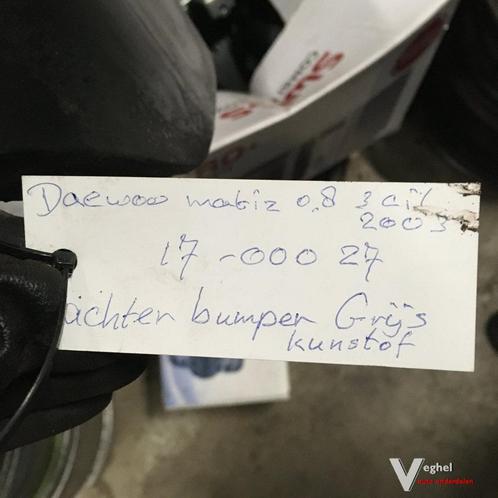 Daewoo matiz 0,8 3 cil
2003
17-000 27
achter bumper Grijs
kunstof
Veghel
auto onderdelen